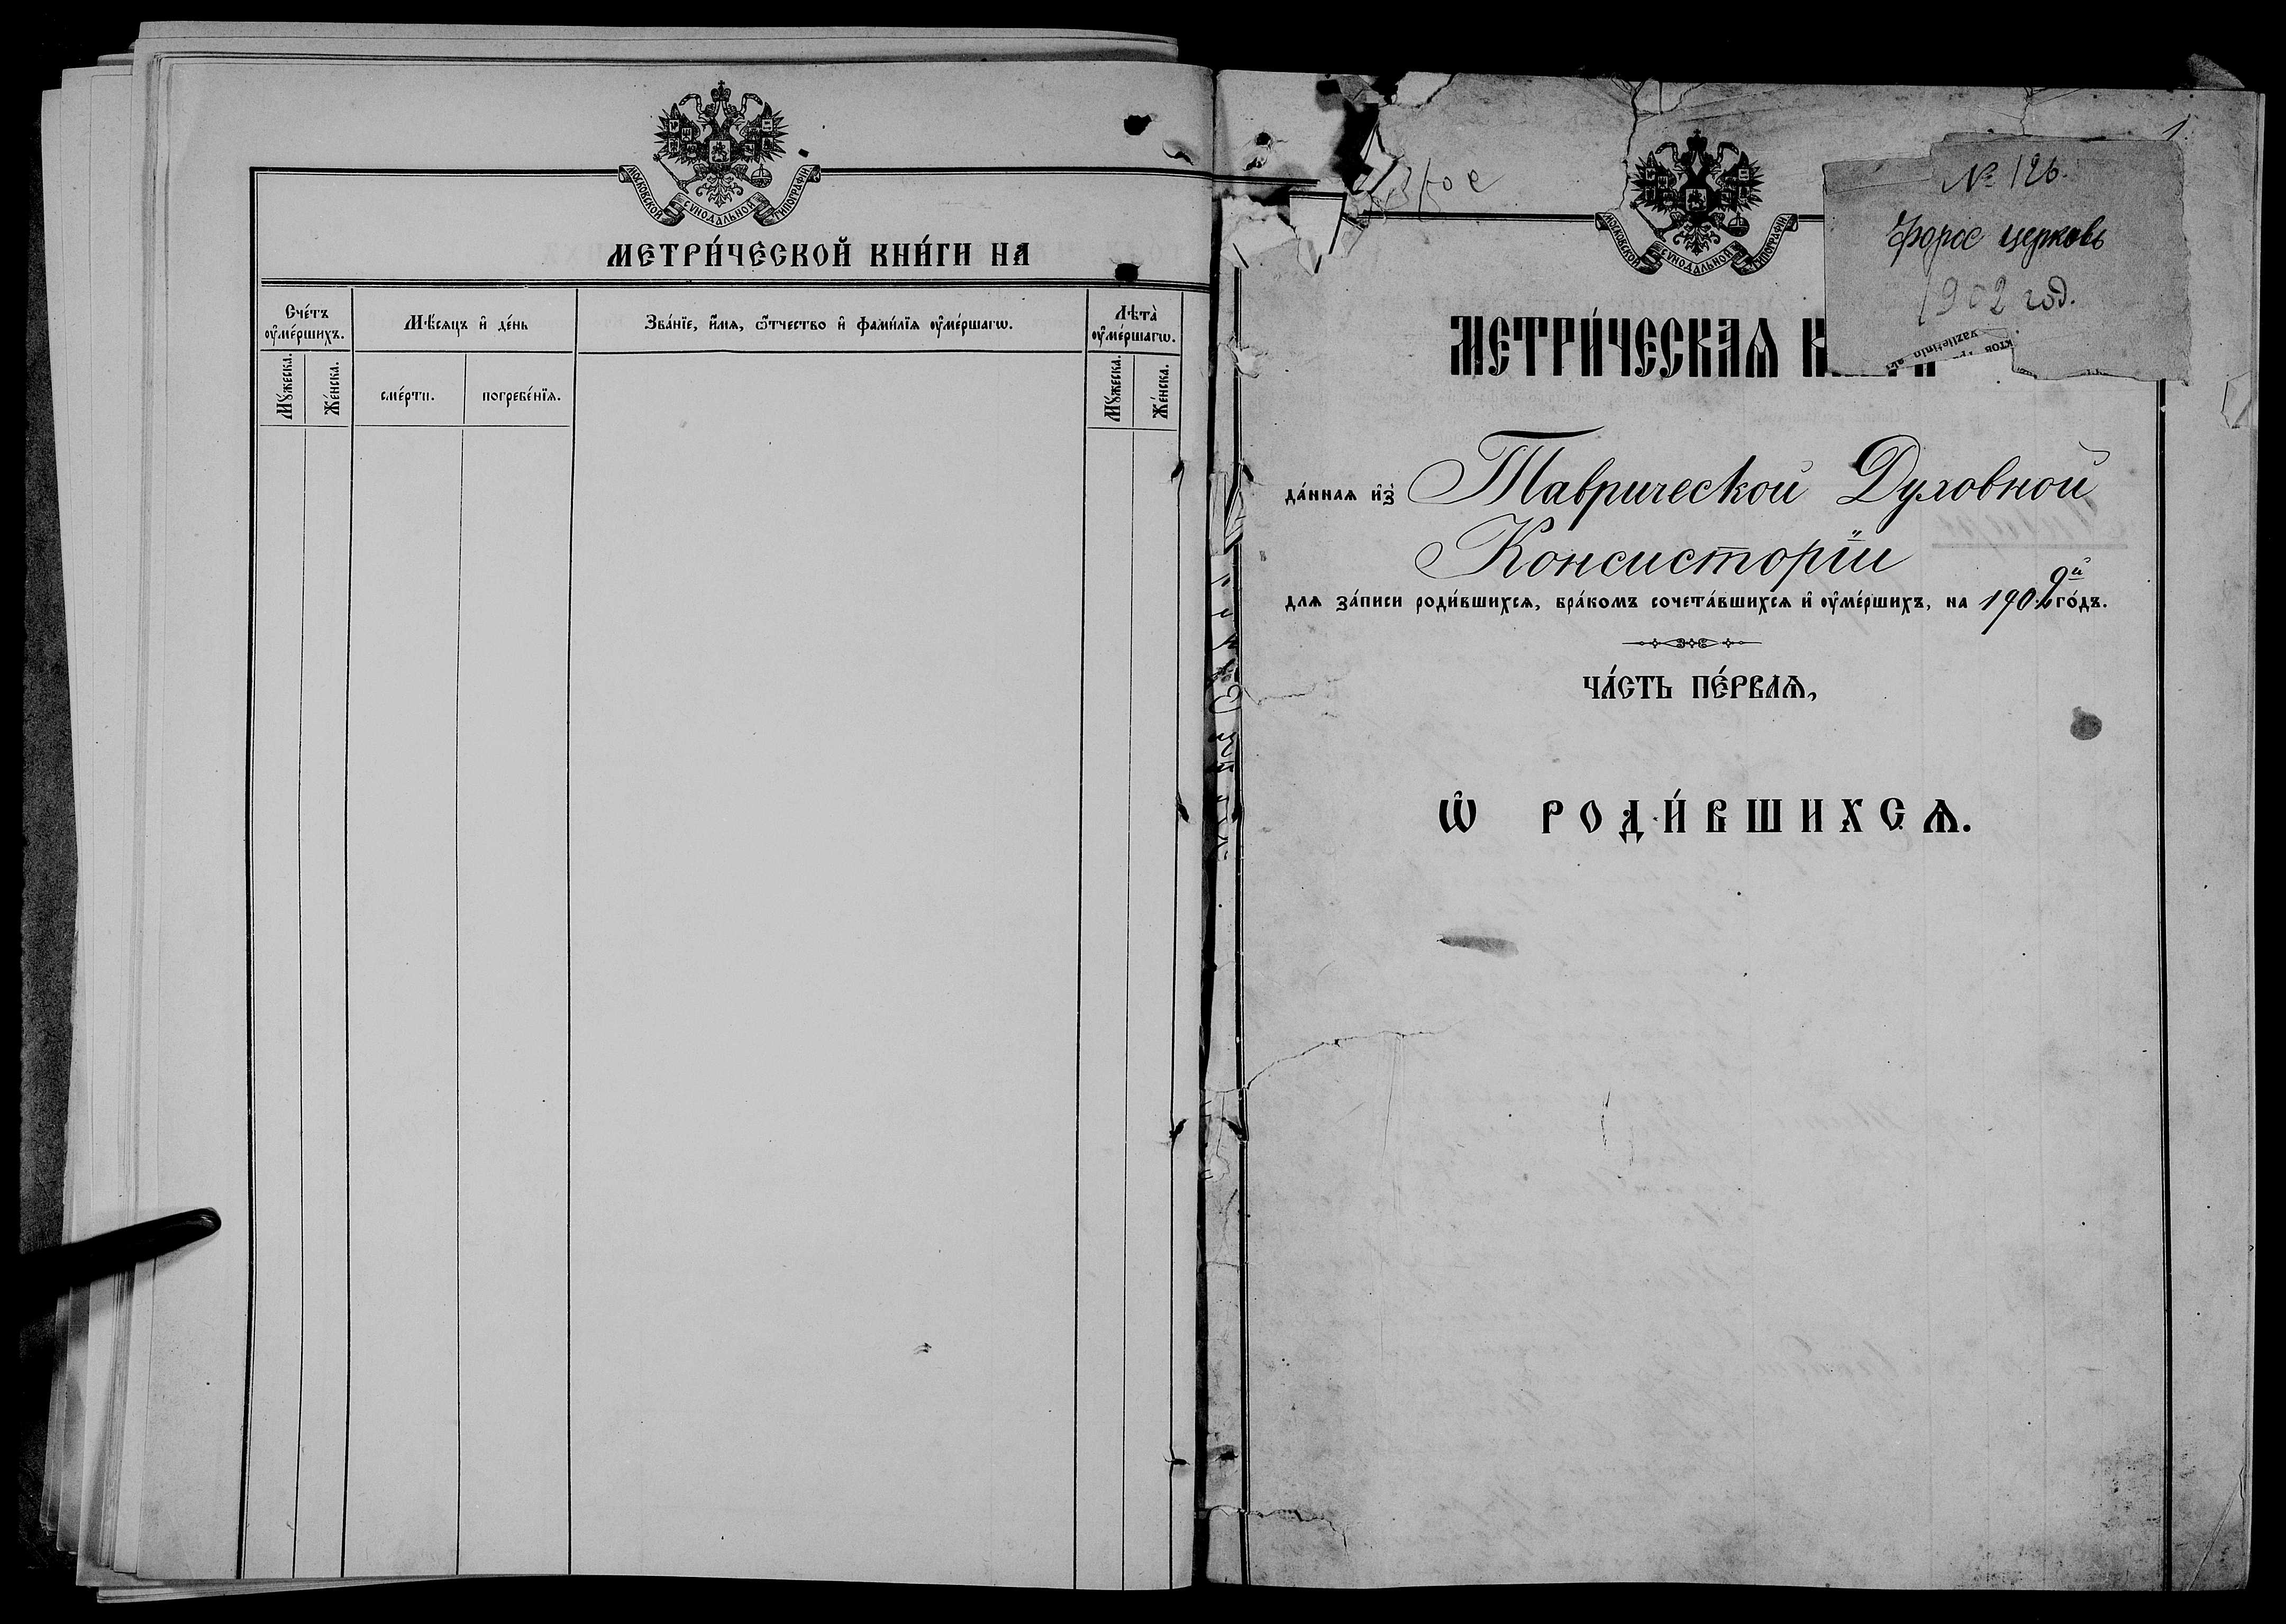 МОСКОВСКОЙ СѴНОДАЛЬНОЙ ТИПОГРАФІИ
МЕТРИ́ЧЕСКОЙ КНИ́ГИ НА
Сче́тъ ᲂу҆ме́ршихъ.
Мѣ́сяцъ и҆ де́нь
Зва́нїе, и҆́мѧ, ѻ҆́тчество и҆ фами́лїѧ ᲂу҆ме́ршагѡ.
Лѣта̀ ᲂу҆ме́ршагѡ.
Мꙋ́жеска.
Же́нска.
сме́рти.
погребе́нїѧ.
Мꙋ́жеска.
Же́нска.
1
№ 126.
Форос церковь
1902 год.
МОСКОВСКОЙ СѴНОДАЛЬНОЙ ТИПОГРАФІИ
МЕТРИ́ЧЕСКАѦ
да́ннаѧ и҆з̾ Таврической Духовной
Консисторіи
для за́писи роди́вшихсѧ, бра́комъ сочета́вшихсѧ и҆ ᲂу҆ме́ршихъ, на 1902й го́дъ.
ЧА́СТЬ ПЕ́РВАѦ,
Ѡ҆ РОДИ́ВШИХСѦ.